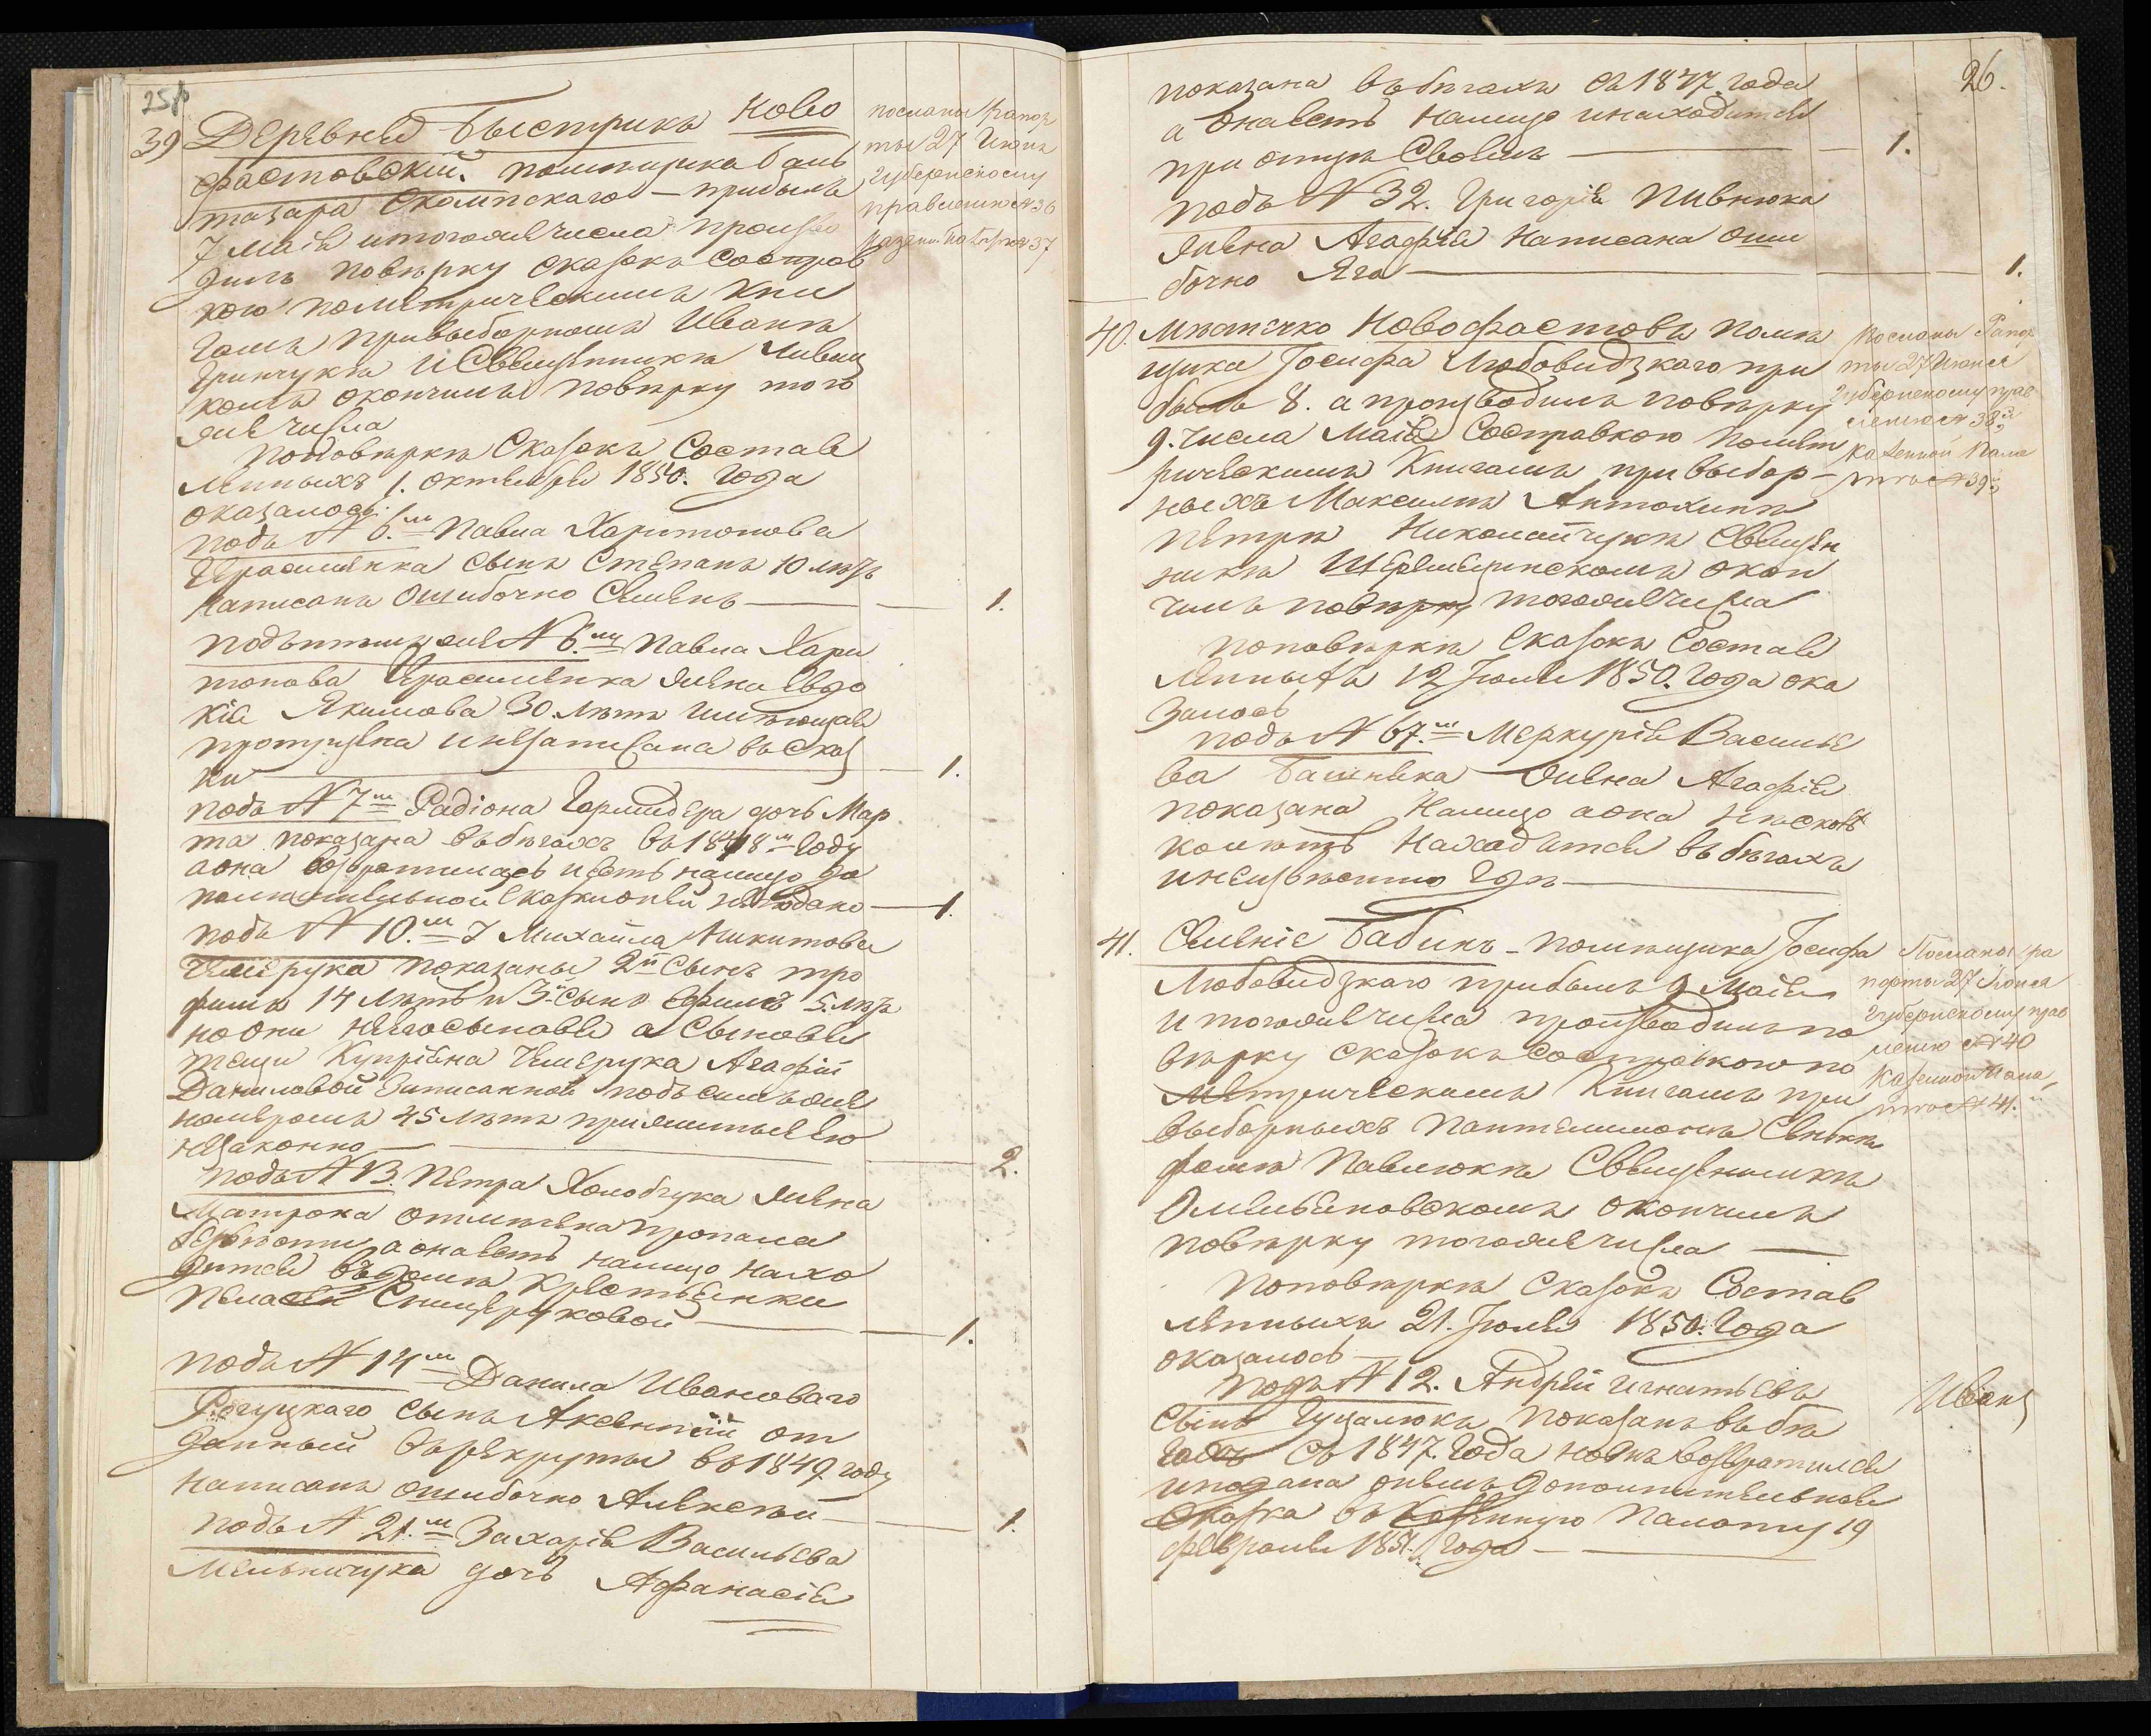 25 об
39 Деревня Быстрика Ново
фастовский помещика Баль
тазара Скомпскаго — прибылъ
7 Маія и того же числа произво
дилъ поверку сказокъ со справ
кою по метрическимъ кни
гамъ при выборномъ Иване
Гринчуке и Священнике
комъ окончилъ поверку того
же числа
По поверке Сказокъ Состав
ленныхъ 1. октября 1850. года
оказалось:
подъ № 6.мъ Павла Харитонова
Герасименка сынъ Степанъ 10 летъ
написанъ ошибочно Семенъ — 1.
подъ темъ же № 6.мъ Павла Хари
тонова Герасименка жена Евдо
кія Якимова 30. летъ имеющая
пропущена и незаписана въ сказ
ки — 1.
подъ № 7мъ Радіона дочь Мар
та показана въ бегахъ въ 1848мъ году
а она возвратилась и есть налицо до
полнительной сказки о ней не подано — 1.
подъ № 10.мъ Михайла Никитова
Чемерука показаны 2й сынъ Тро
фимъ 14 летъ и 3й сынъ Ефимъ 5. летъ
но они не его сыновья а сыновья
тещи Купріяна Чемерука Агафіи
Даниловой записанной подъ симъ же
номеромъ 45 летъ прижитые ею
незаконно — 2.
подъ № 13. Петра Холобчука жена
Матрона отмечена пропала
безвести, а она есть налицо нахо
дится въ доме крестьянки
Пелагеи — 1.
подъ № 14мъ Данила Ивановаго
Рогуцкаго сынъ Аксентій от
данный въ рекруты въ 1849 году
написанъ ошибочно Алексей — 1.
подъ № 21.мъ Захарія Васильева
Мельничука дочь Афанасія
посланы рапор
ты 27 Июня
Губернскому
правленію № 36
Казенн. палате № 37
26.
показана въ бегахъ съ 1847. года
а она есть налицо и находится
при отце своемъ — 1.
подъ № 32. Григорія Пивнюка
жена Агафія написана оши
бочно Яга — 1.
40. Местечко Новофастовъ поме
щика Іосифа Любовидзкаго при
былъ 8. а производилъ поверку
9. числа Маія Со справкою по мет
рическимъ Книгамъ при выбор-
ныхъ Максиме Антохине
Петре Николайчуке Священ
нике окон
чилъ поверку того же числа
По поверке Сказокъ Состав
ленныхъ 12 Іюля 1850. года ока
залось
подъ № 67.мъ Меркурія Василье
ва жена Агафія
показана налицо а она несколь
ко летъ находится въ бегахъ
и неизвестно где —
посланы Рапор
ты 27 Июня
Губернскому прав
ленію № 38й
Казенной Пала
те № 39й
41. Селеніе Бабинъ — помещика Іосифа
Любовидзкаго прибылъ 9 Маія
и того же числа производилъ по
верку сказокъ со справкою по
Метрическимъ Книгамъ при
выборныхъ Пантелимоне
фоме Павлюке Священнике
Омельяновскомъ окончилъ
поверку того же числа —
По поверке Сказокъ Состав
ленныхъ 21. Іюля 1850. года
оказалось —
подъ № 12. Андрей Игнатьевъ
сынъ Гуцалюкъ показанъ въ бе
гахъ съ 1847. года но онъ возвратился
и подана о немъ дополнительная
сказка въ Казенную Палату 19
февраля 1851. года —
Посланы ра
порты 27 Июня
Губернскому прав
ленію № 40
Казенной пала
те № 41.